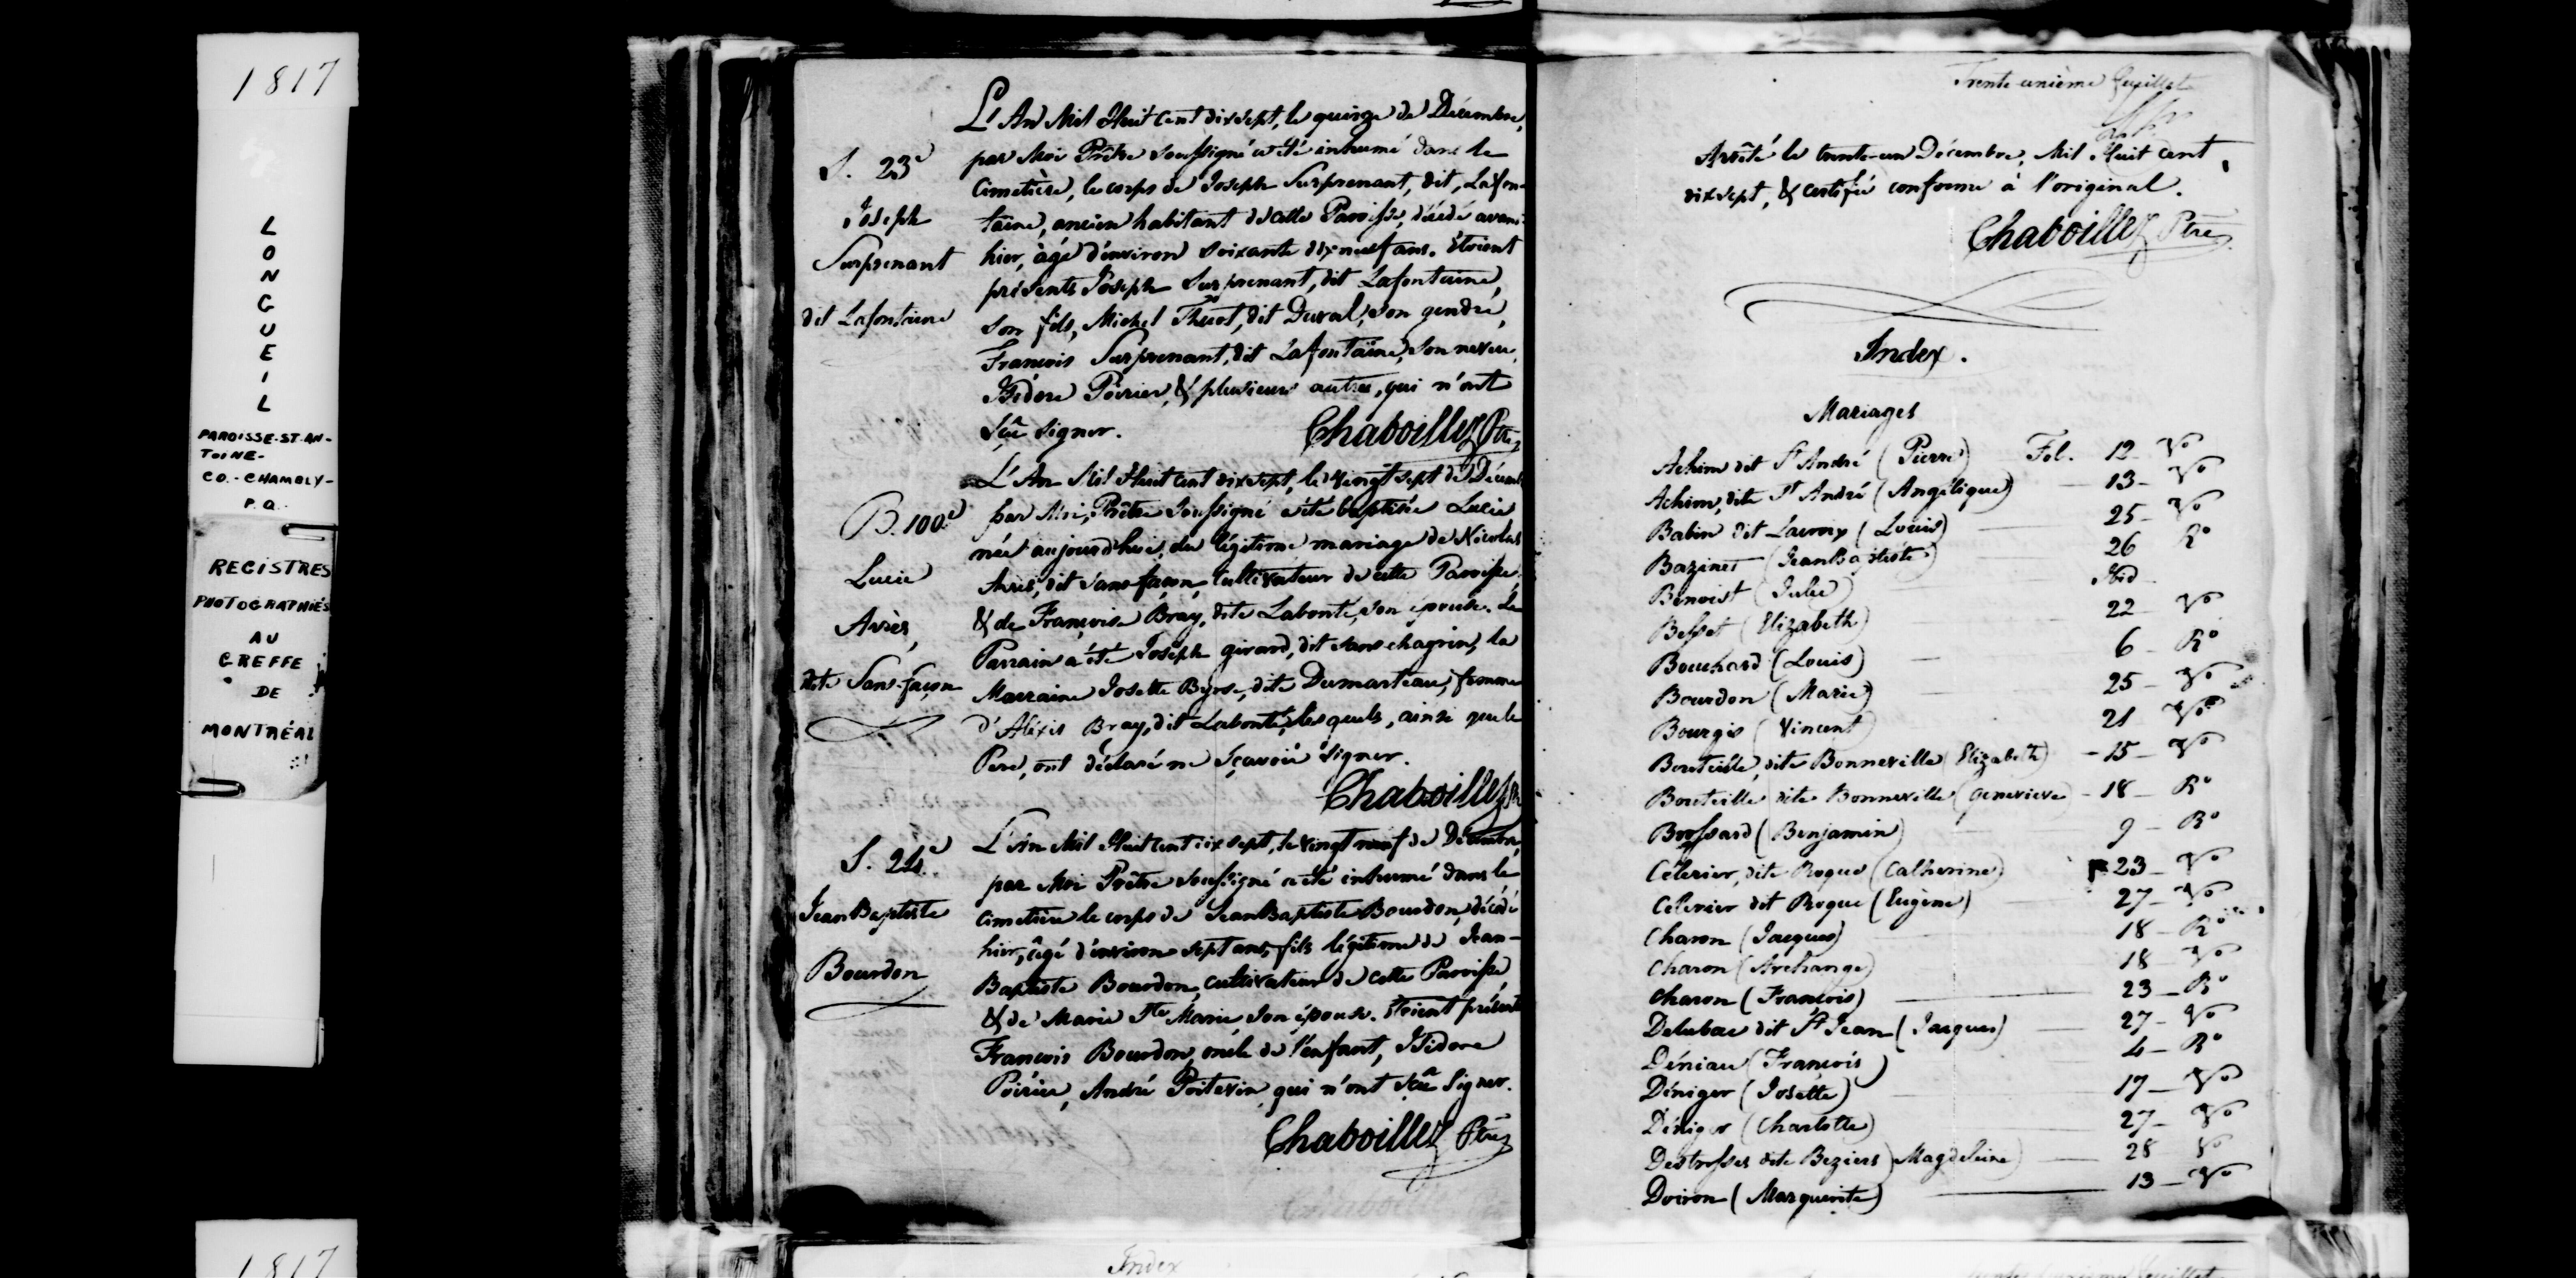 1817
LONGUEIL
PAROISSE-ST-AN-
TOINE-
CO.-CHAMBLY-
P.Q.
REGISTRES
PHOTOGRAPHIÉS
AU
GREFFE
DE
MONTRÉAL
1817
S. 23e
Joseph
Surprenant
dit Lafontaine
L'An Mil Huit Cent dixsept, le quinze de Décembre,
par Moi Prêtre Soussigné a été inhumé dans le
Cimetière, le corps de Joseph Surprenant, dit, Lafon-
taine, ancien habitant de cette Paroisse, décédé avant-
hier, âgé d'environ soixante dix neuf ans. Étoient
présents Joseph Surprenant, dit Lafontaine,
son fils, Michel Thuot, dit Duval, son gendre,
François Surprenant, dit Lafontaine, son neveu,
Isidore Poirier, & plusieurs autres, qui n'ont
sçu signer. Chaboillez Ptre
B. 100e
Lucie
Avès,
dite Sans-façon
L'An Mil Huit cent dixsept, le vingt sept de Décemb
par Moi, Prêtre Soussigné a été baptisée Lucie
née aujourdhui, du légitime mariage de Nicolas
dit Sans-façon, Cultivateur de cette Paroisse,
& de Françoise Bray, dite Labonté, son épouse. Le
Parrain a été Joseph girard, dit sans chagrin, la
Marraine Josette dite Dumarteau, femme
d'Alexis Bray, dit Labonté, lesquels, ainsi que le
Père, ont déclaré ne sçavoir signer.
Chaboillez Ptre
S. 24e
Jean Baptiste
Bourdon
L'An Mil Huit cent dix sept, le vingt neuf de Décembre,
par Moi Prêtre Soussigné a été inhumé dans le
cimetière le corps de Jean Baptiste Bourdon, décédé
hier, âgé d'environ sept ans, fils légitime de Jean-
Baptiste Bourdon, cultivateur de cette Paroisse,
& de Marie Ste Marie son épouse. Étoient présents
François Bourdon, oncle de l'enfant, Isidore
Poirier, André Poitevin qui n'ont sçu signer.
Chaboillez Ptre
Trente-unième feuillet
Arrêté le trente-un Décembre, Mil Huit cent
dixsept, & certifié conforme à l'original.
Chaboillez Ptre
Index.
Mariages
Achim dit St André (Pierre) Fol. 12 Vo
Achim, dite St André (Angélique) 13 - Vo
Babin dit Lacroix (Louis) 25 - Vo
Bazinet (Jean Baptiste) 26 Ro
Benoist (Julie) Ibid
Besset (Elizabeth) 22 - Vo
Bouchard (Louis) 6 - Ro
Bourdon (Marie) 25 - Vo
Bourgis (Vincent) 21 Vo
Bouteille, dite Bonneville (Elizabeth) - 15 - Vo
Bouteille dite Bonneville (genevieve - 18 - Ro
Brossard (Benjamin) 9 - Ro
Célerier, dite Roque (Catherine) 23 - Vo
Célerier dit Roque (Eugène) 27 - Vo
Charon (Jacques) 18 - Ro
Charon (Archange) 18 - Vo
Charon (François) 23 - Ro
Delubac dit St Jean (Jacques) 27 - Vo
Déniau (François) 4 - Ro
Déniger (Josette) 17 - Vo
Déniger (Charlotte) 27 - Vo
Destrosses dite Beziers) Magdeleine) 28 Vo
Doiron (Marguerite) 13 - Vo
Index